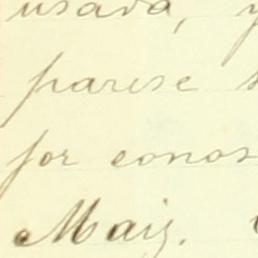 usada, y
parese
for conos
Maiz.